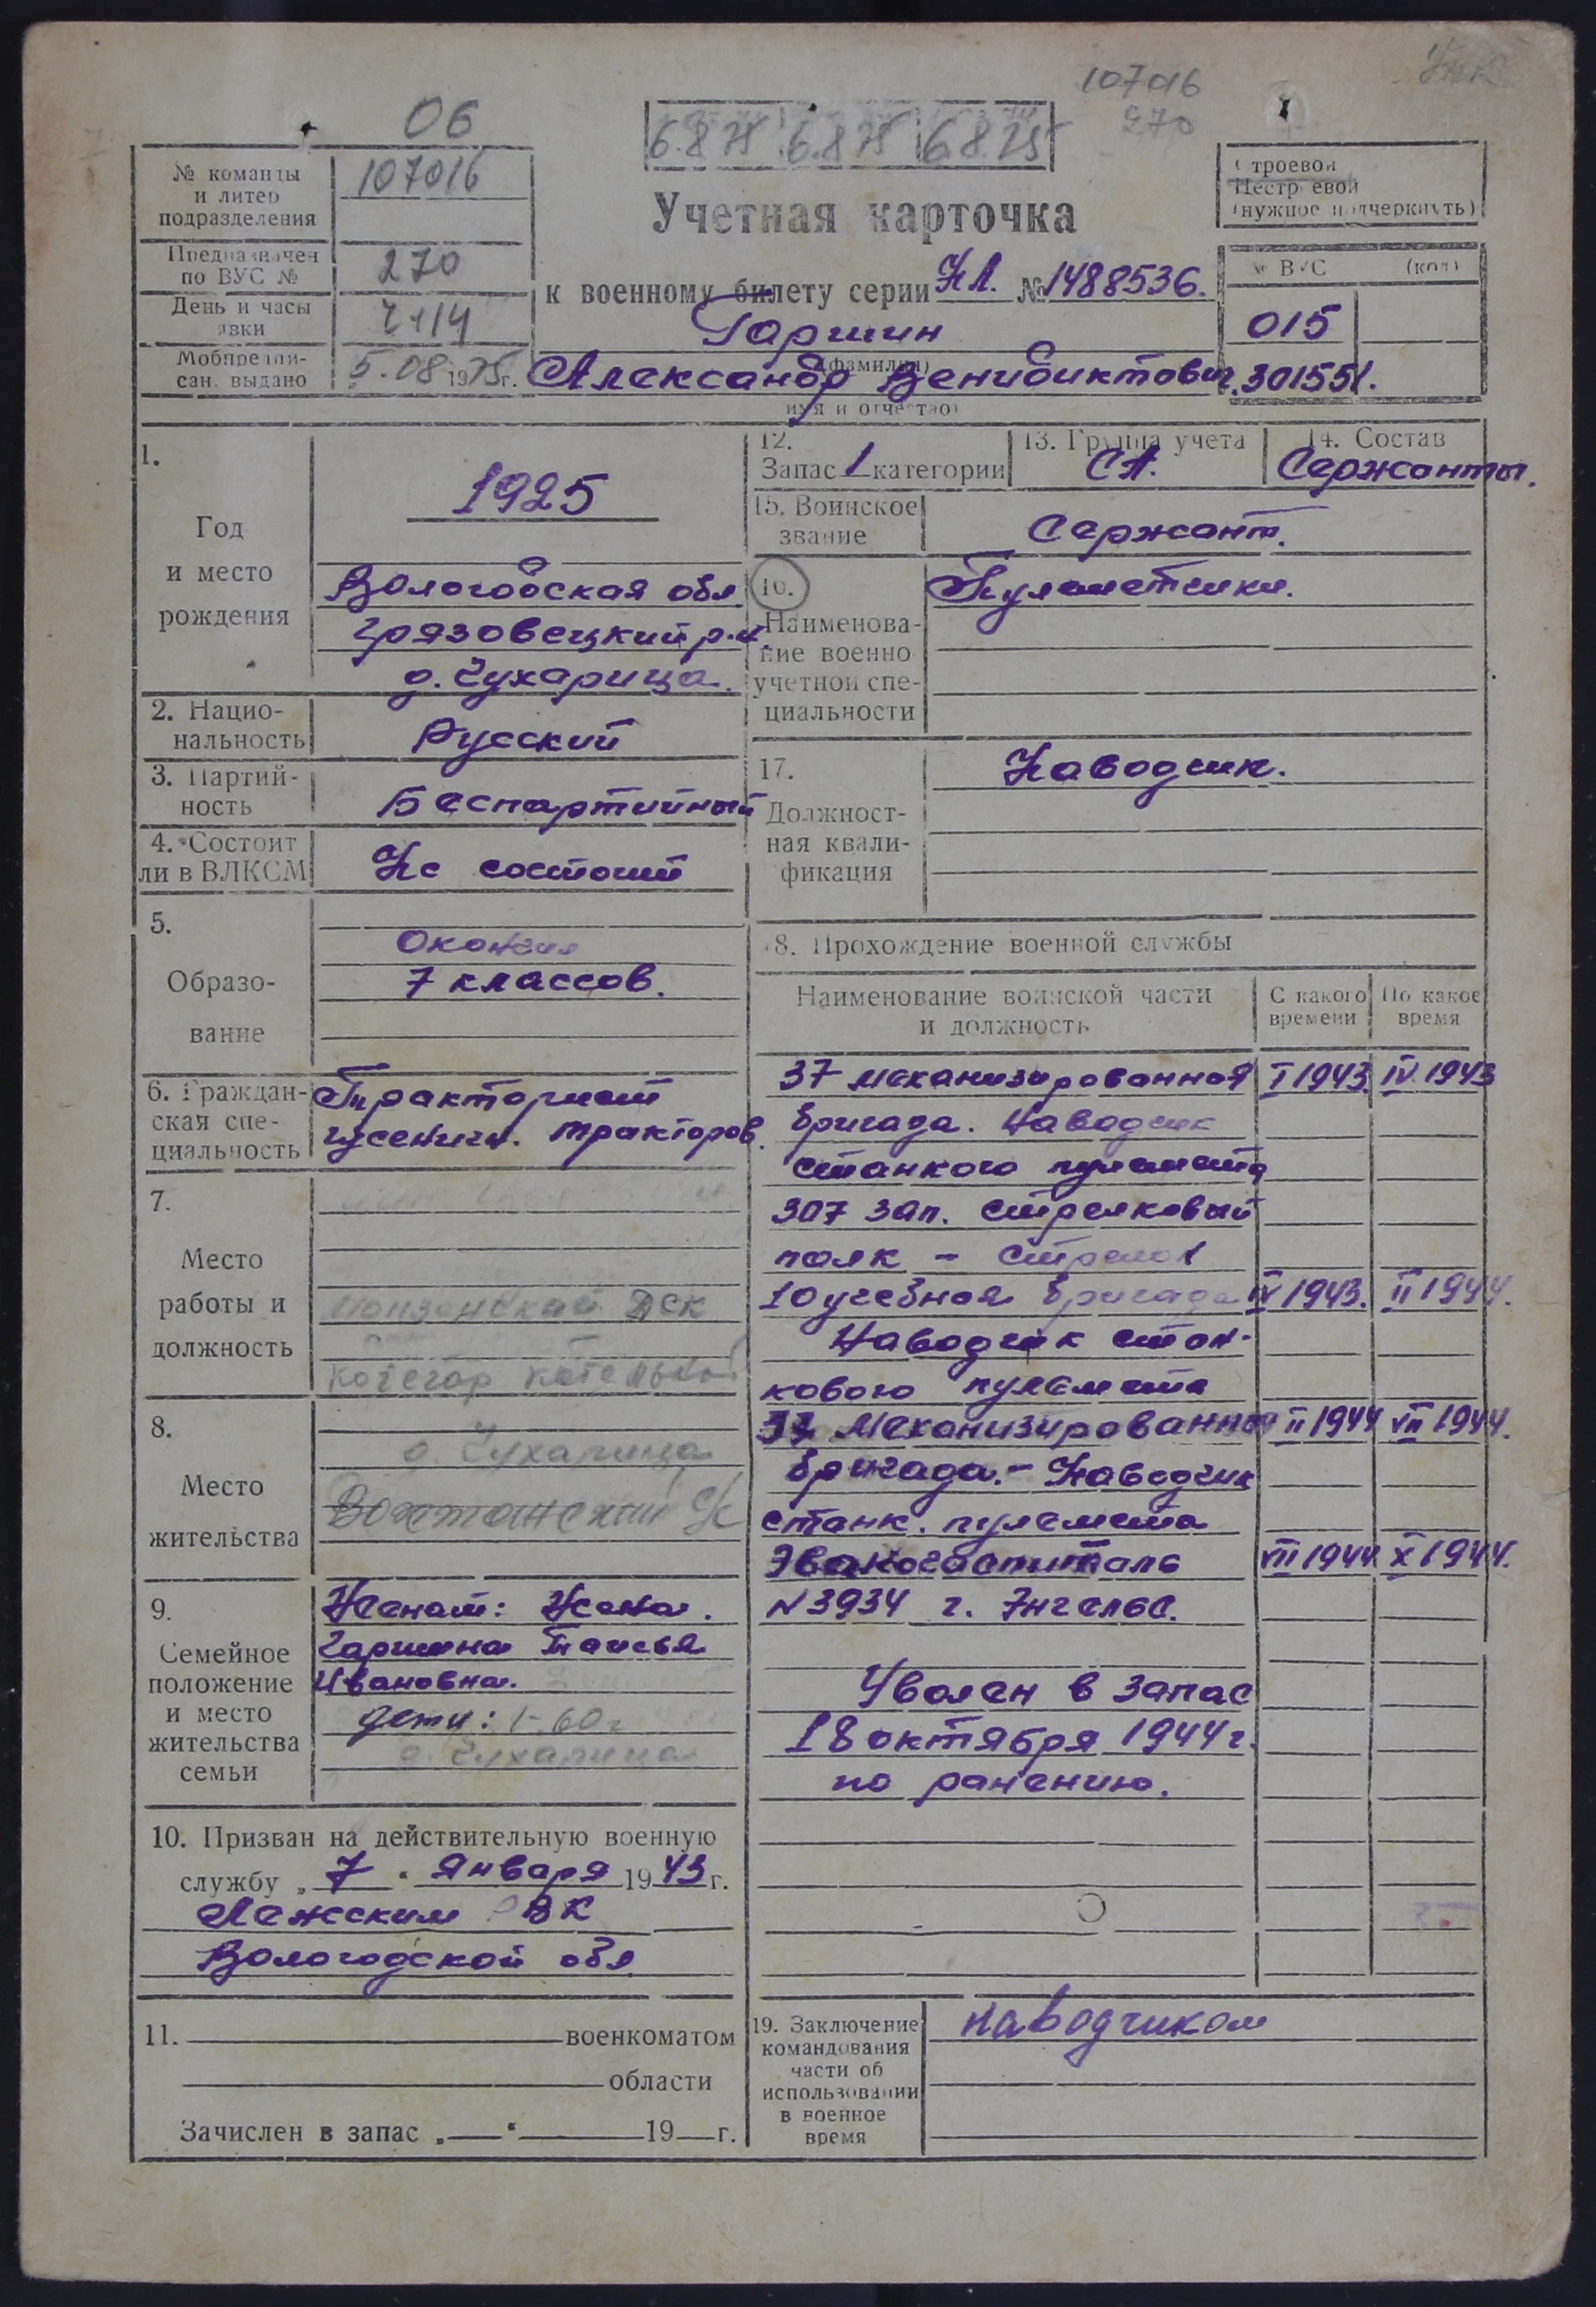 107016
270
06
6.8.75 6.8.75 6.8.75
№ команды
и литер
подразделения
107016
Предназначен
по ВУС №
270
День и часы
явки
2+14
Мобпредпи-
сан. выдано
5.08 1975г.
Строевой
Нестроевой
(нужное подчеркнуть)
Учетная карточка
к военному билету серии НЛ. № 1488536.
Гаршин
(фамилия)
Александр Венидиктович.
имя и отчество)
№ ВУС (код)
015
301551.
1.
Год
и место
рождения
1925
Вологодская обл
Грязовецкий р.н.
д. Чухарица.
2. Нацио-
нальность
Русский
3. Партий-
ность
Беспартийный
4. Состоит
ли в ВЛКСМ
Не состоит
5.
Образо-
вание
Окончил
7 классов.
6. Граждан-
ская спе-
циальность
Тракторист
гусеничн. тракторов.
7.
Место
работы и
должность
Монзенский ДСК
кочегар котельной
8.
Место
жительства
д. Чухарица
Вохтожский с/с
9.
Семейное
положение
и место
жительства
семьи
Женат: Жена.
Гаршина Таисья
Ивановна.
дети: 1-60г
д. Чухарица
10. Призван на действительную военную
службу „ 7 “ Января 1943 г.
Лежским РВК
Вологодской обл
11. военкоматом
области
Зачислен в запас „ “ 19 г.
12.
Запас 1 категории
13. Группа учета
СА.
14. Состав
Сержанты.
15. Воинское
звание
Сержант.
16.
Наименова-
ние военно
учетной спе-
циальности
Пулеметчики.
17.
Должност-
ная квали-
фикация
Наводчик.
18. Прохождение военной службы
Наименование воинской части
и должность
С какого
времени
По какое
время
37 механизированная I 1943. IV 1943
бригада. Наводчик
станкого пулемета
307 зап. стрелковый
полк - стрелок
10 учебная бригада IV 1943. II 1944.
Наводчик стан-
кового пулемета
37 Механизированная II 1944 VII 1944.
бригада. - Наводчик
станк. пулемета
Эвакогоспиталь VII 1944 X 1944.
N 3934 г. Энгельс.
Уволен в запас
18 октября 1944г.
по ранению.
19. Заключение
командования
части об
использовании
в военное
время
наводчиком